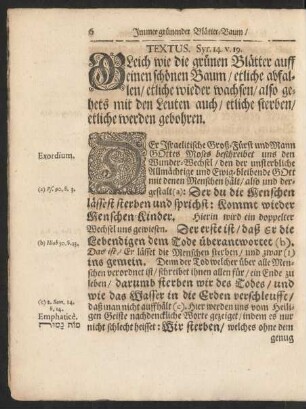 6 Immer grünender Blätter-Baum /
TEXTUS. Syr. 14. v. 19.
GLeich wie die grünen Blätter auff
einen schönen Baum / etliche abfal-
len / etliche wieder wachsen / also ge-
hets mit den Leuten auch / etliche sterben /
etliche werden gebohren.
Exordium.
DEr Israelitische Groß-Fürst und Mann
GOttes Moses beschreibet uns den
Wunder-Wechsel / den der unsterbliche
Allmächtige und Ewig-bleibende GOtt
mit denen Menschen hält / also und der-
(a) Ps. 90. s. 3.
gestalt (a): Der du die Menschen
lässest sterben und sprichst: Kommt wieder
Menschen Kinder. Hierin wird ein doppelter
Wechsel uns gewiesen. Der erste ist / daß Er die
(b) Hiob 30. s. 23.
Lebendigen dem Tode überantwortet (b).
Das ist / Er lässet die Menschen sterben / und zwar (1)
uns gemein. Denn der Tod welcher über alle Men-
schen verordnet ist / schreibet ihnen allen für / ein Ende zu
leben / darumb sterben wir des Todes / und
wie das Wasser in die Erden verschleusst /
(c) 2. Sam. 14. s. 14.
daß man nicht auffhält (c). Hier werden uns vom Heili-
Emphaticè.
gen Geiste nachdenckliche Worte gezeiget / indem es nur
מות נמות
nicht schlecht heisset: Wir sterben / welches ohne dem
genug